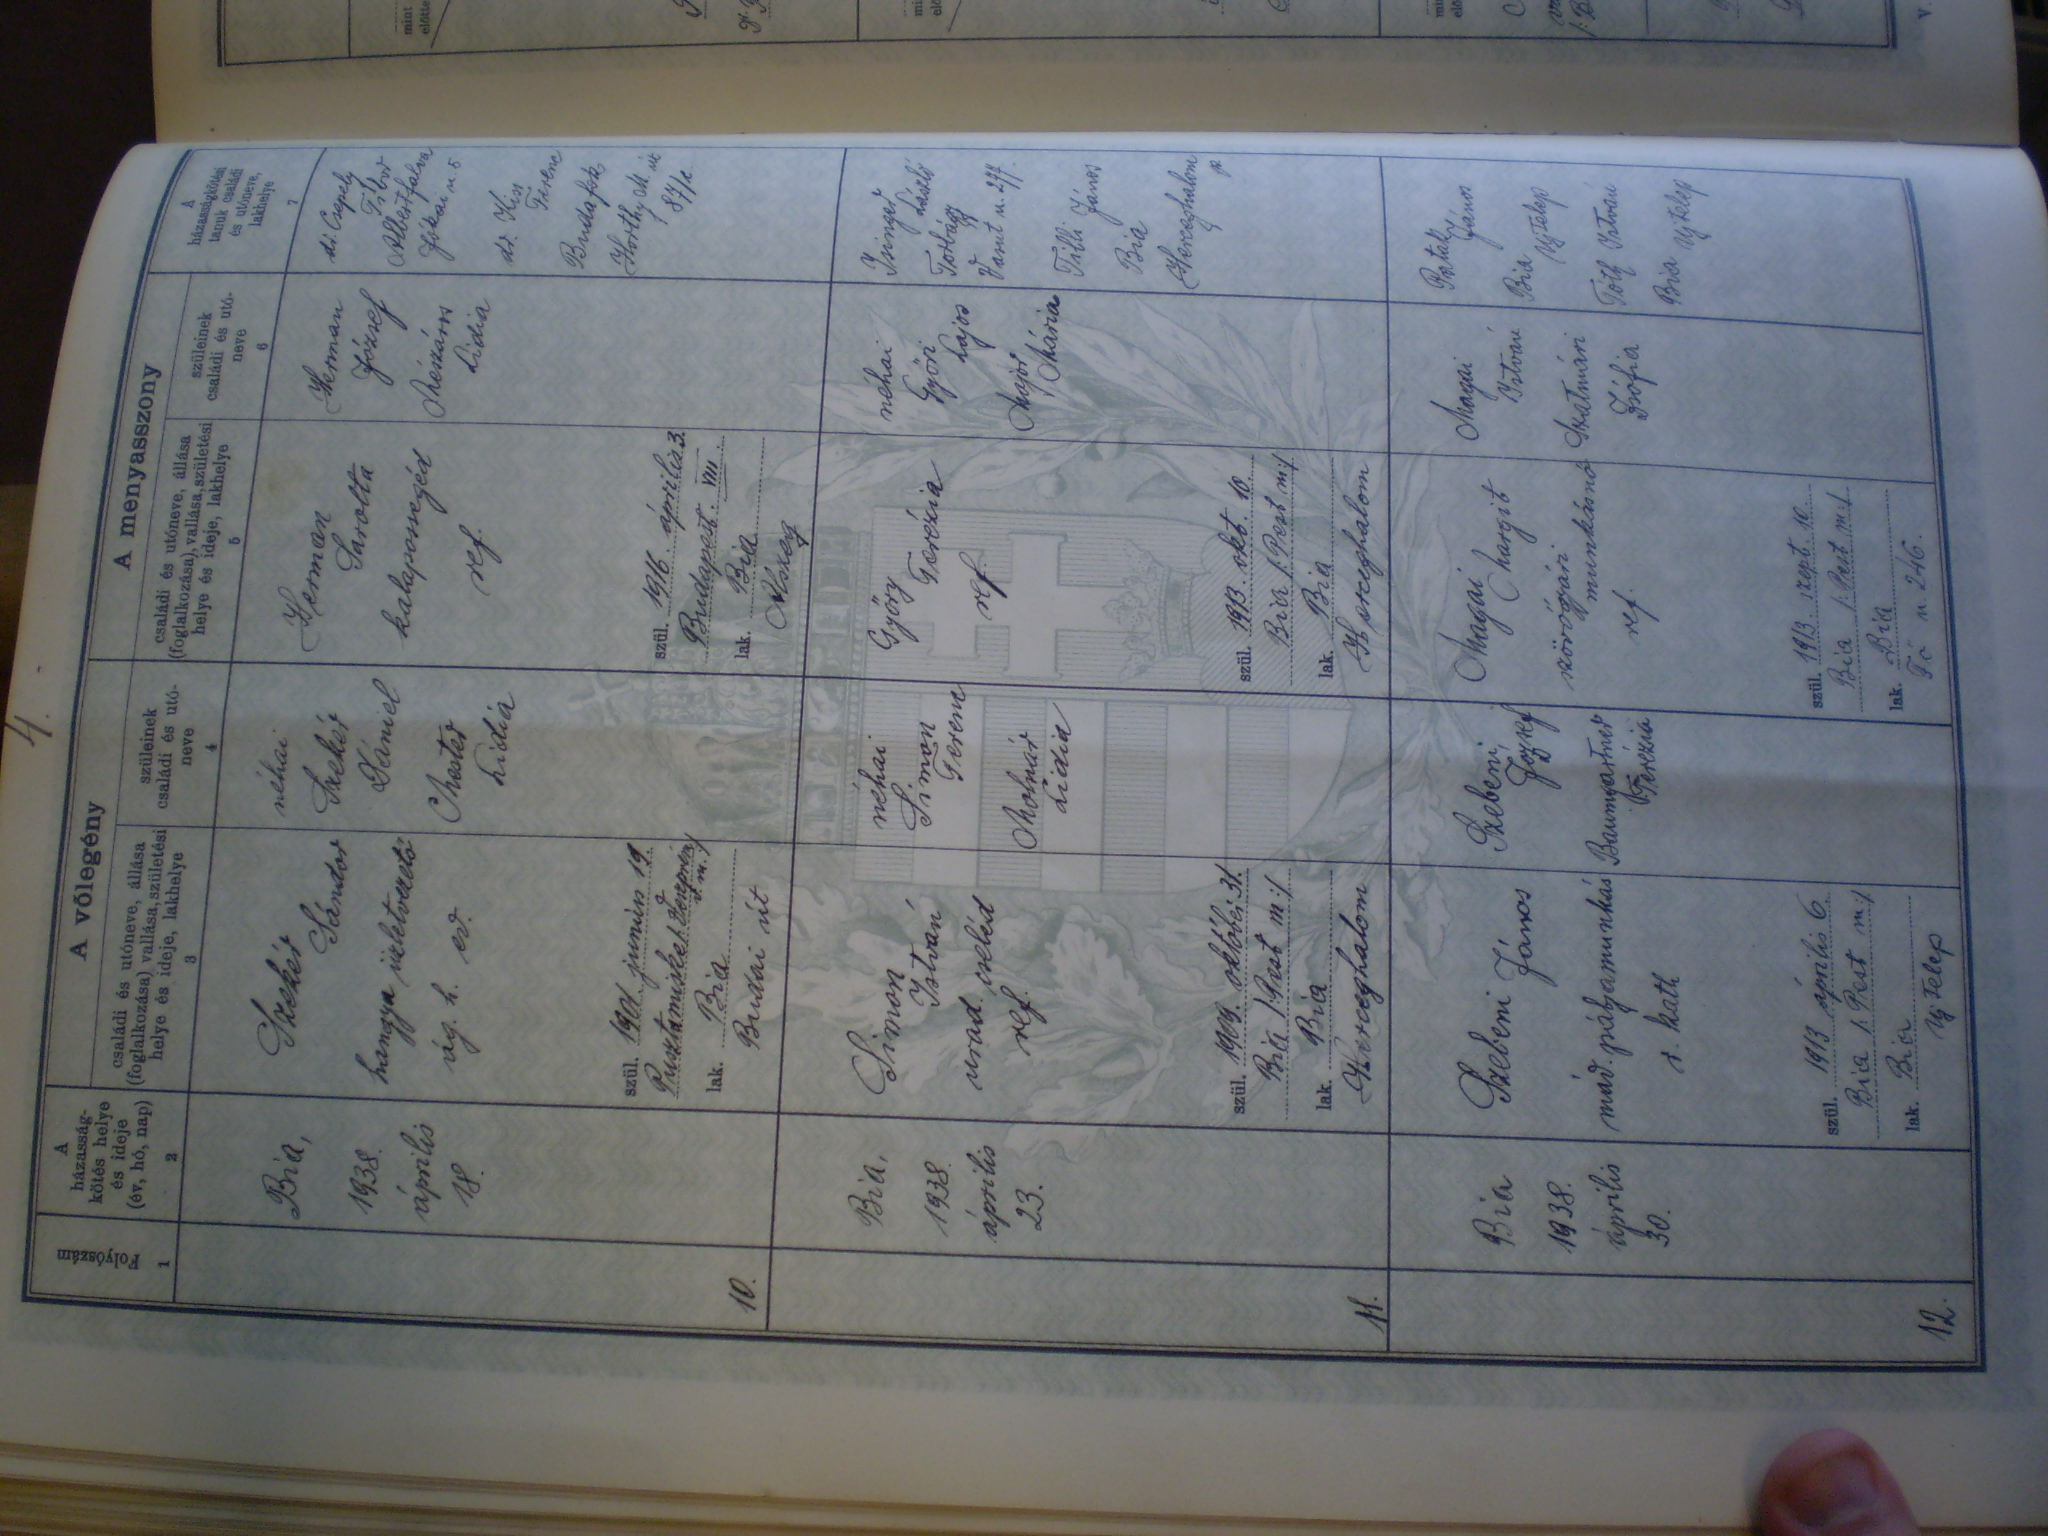 4.
Folyószám
1
A
házasság-
kötés helye
és ideje
(év, hó, nap)
2
A vőlegény
családi és utóneve, állása
(foglalkozása) vallása, születési
helye és ideje, lakhelye
3
szüleinek
családi és utó-
neve
4
A menyasszony
családi és utóneve, állása
(foglalkozása), vallása, születési
helye és ideje, lakhelye
5
szüleinek
családi és utó-
neve
6
A
házasságkötési
tanuk családi
és utóneve,
lakhelye
7
10.
Bia,
1938.
április
18.
Szekér
Sándor
hangya üzletvezető
ág. h. ev.
szül. 1901. junius 19.
lak. Bia
Budai út
néhai
Szekér
Dániel
Mester
Lidia
Herman
Sarolta
kalapossegéd
ref.
szül. 1916. április 3.
Budapest. VIII.
lak. Bia
Alszeg
Herman
József
Mészáros
Lidia
dr. Csepely
Tibor
Albertfalva
Jókai u. 5
dr. Kiss
Ferenc
Budafok
Horthy M. út
87/c
11.
Bia,
1938.
április
23.
Simon
István
urad. cseléd
ref.
szül. 1909. október 31.
Bia /: Pest m :/
lak. Bia
Herceghalom
néhai
Simon
Ferenc
Molnár
Lidia
Györy
Terézia
ref.
szül. 1913. okt. 10.
Bia /: Pest m :/
lak. Bia
Herceghalom
néhai
Győri
Lajos
Major
Mária
Izinger
László
Torbágy
u. 277.
Tilli János
Bia
Herceghalom
p
12.
Bia
1938.
április
30.
Szebeni
János
máv. pályamunkás
r. kath
szül. 1913 április 6.
Bia /: Pest m :/
lak. Bia
Ujtelep
Szebeni
József
Baumgartner
Terézia
Magai
Margit
szörőgyári
munkásnő
ref.
szül. 1913. szept. 10.
Bia /: Pest m :/
lak. Bia
Fő u. 246.
Magai
István
Szatmári
Zsófia
Patak
János
Bia Ujtelep
Tóth István
Bia Ujtelep